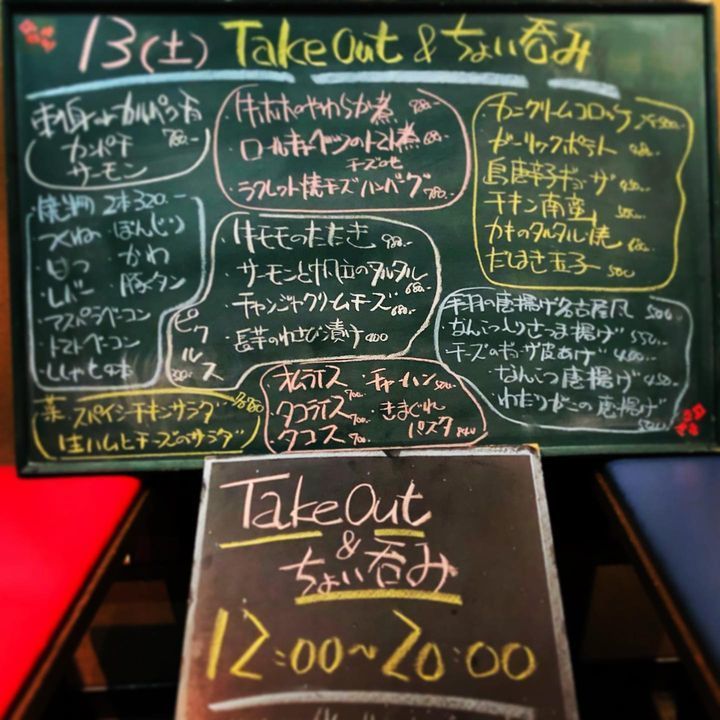 13(土) Take Out & ちょい呑み
カルパッチョ
カンパチ 780.-
サーモン
焼物 2本320.-
・つくね ・ぼんじり
・かわ
・レバー ・豚タン
・アスパラベーコン
・トマトベーコン
・ししゃも4本
・牛ホホのやわらか煮
・ロールキャベツのトマト煮 680.-
・ラクレット焼チーズハンバーグ 780.-
・牛モモのたたき 980.-
・サーモンと帆立のタルタル 680.-
・チャンジャクリームチーズ 680.-
・長芋のわさび漬け 400
ピクルス 300.-
・カニクリームコロッケ
・ガーリックポテト
・島唐辛子ギョーザ 450.-
・チキン南蛮 500.-
・カキのタルタル焼 600.-
・だしまき玉子 500
・手羽の唐揚げ名古屋風 500.-
・なんこつ入りさつま揚げ 550.-
・チーズのギョーザ皮あげ 400.-
・なんこつ唐揚げ 450.-
・わたりがにの唐揚げ
菜 スパイシーチキンサラダ
生ハムとチーズのサラダ
・オムライス 700.- ・チャーハン 500.-
・タコライス 700.- ・きまぐれ
・タコス 700.- パスタ
Take Out
&
ちょい呑み
12:00~20:00